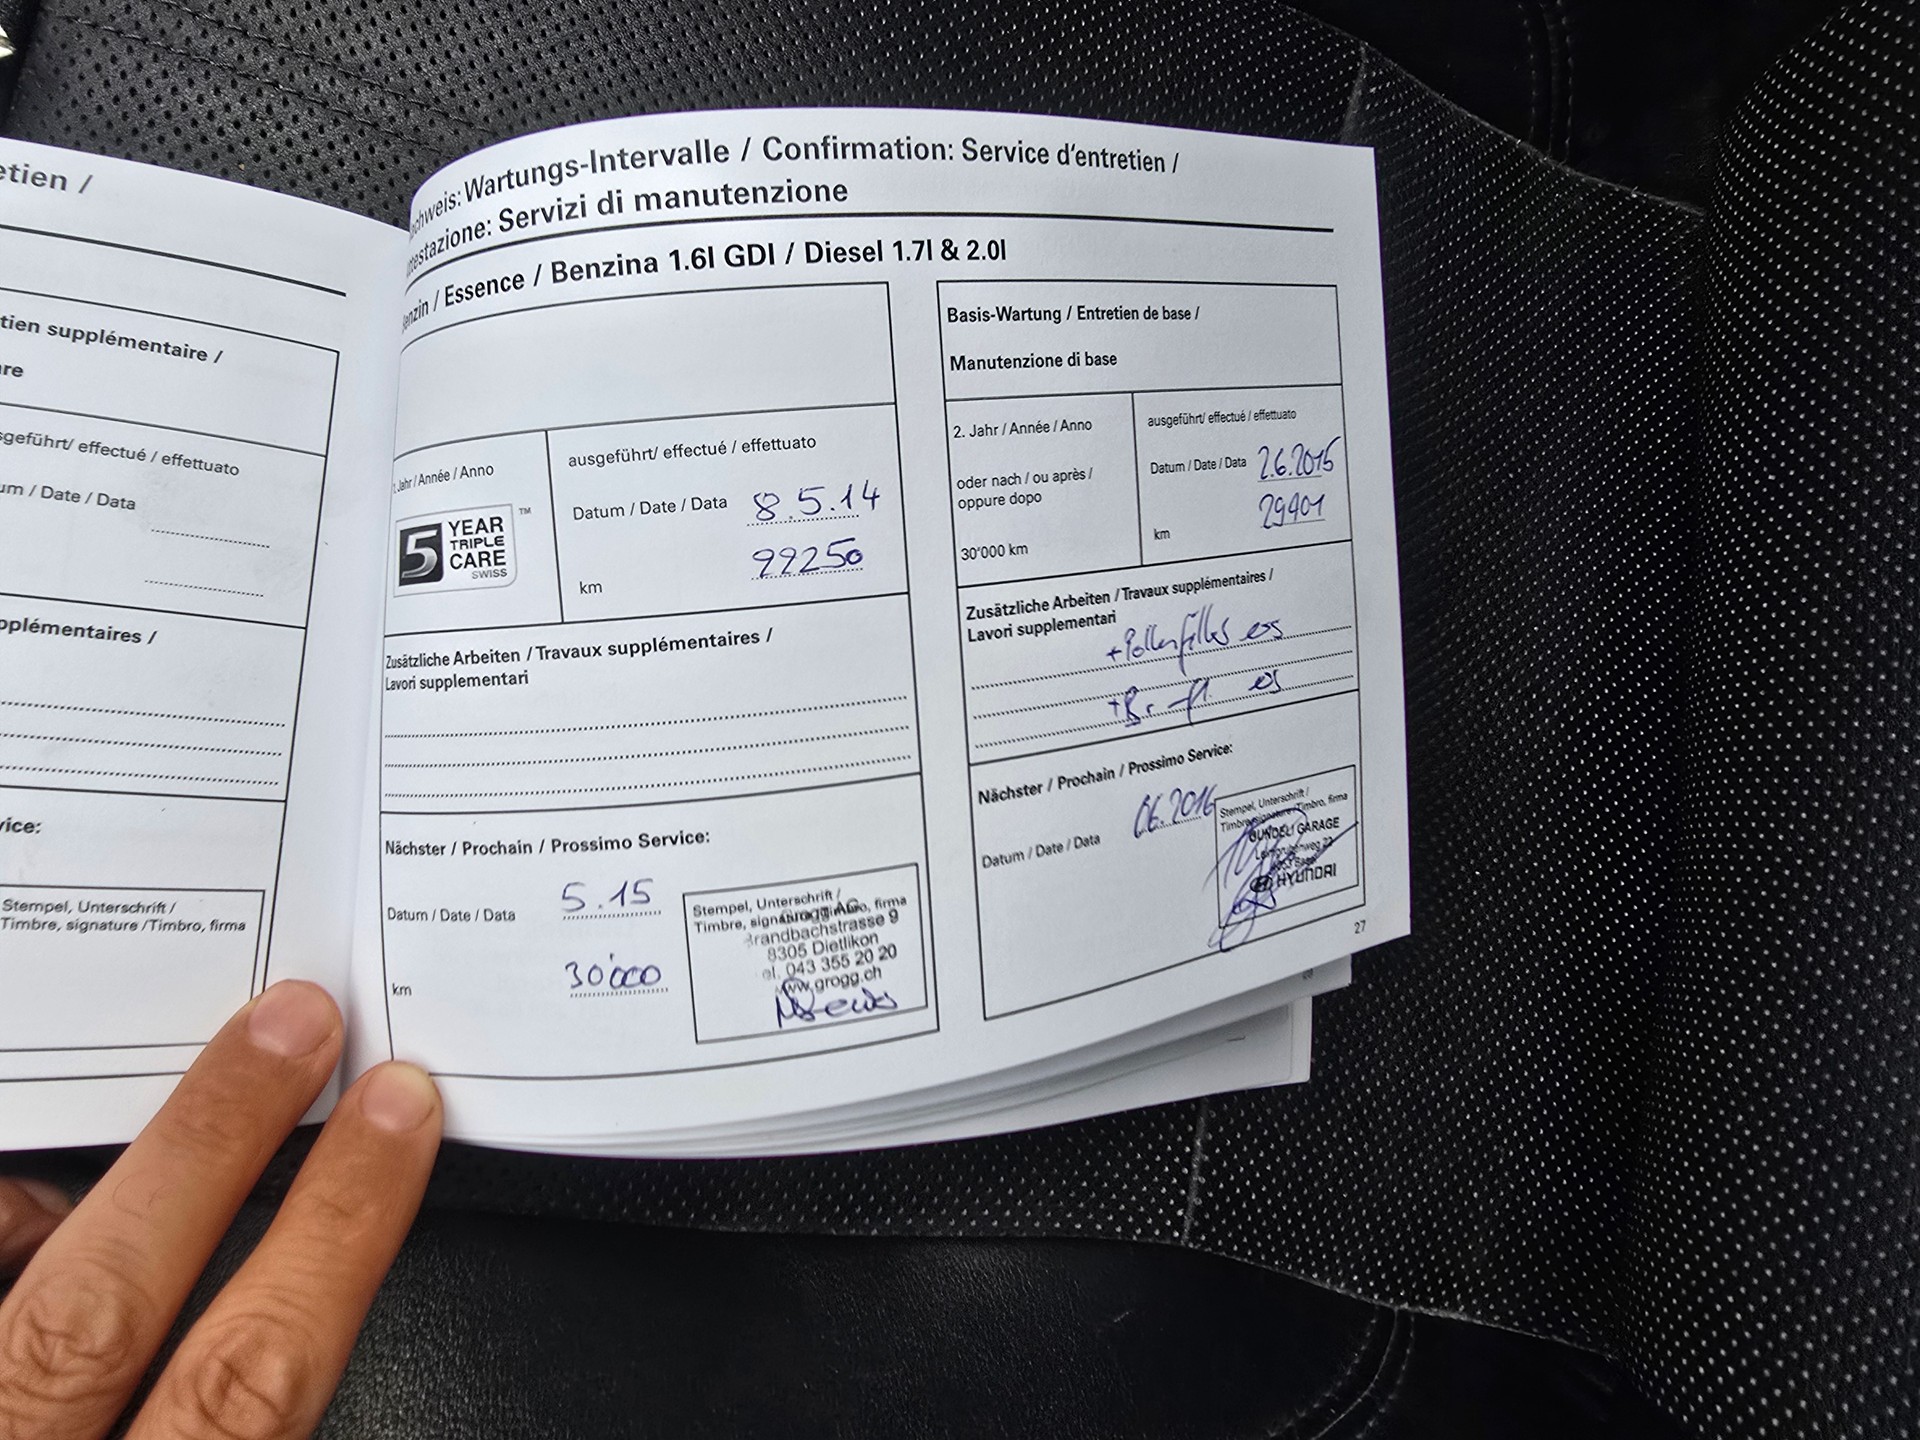 etien /
tien supplémentaire /
re
sgeführt/ effectué / effettuato
um / Date / Data
pplémentaires /
vice:
Stempel, Unterschrift /
Timbre, signature /Timbro, firma
chweis: Wartungs-Intervalle / Confirmation: Service d'entretien /
testazione: Servizi di manutenzione
enzin / Essence / Benzina 1.6l GDI / Diesel 1.7l & 2.0l
. Jahr / Année / Anno
5 YEAR
TRIPLE
CARE
SWISS
TM
ausgeführt/ effectué / effettuato
Datum / Date / Data 8.5.14
22250
km
Zusätzliche Arbeiten / Travaux supplémentaires /
Lavori supplementari
Nächster / Prochain / Prossimo Service:
Datum / Date / Data 5.15
km 30'000
Stempel, Unterschrift /
Timbre, signature /Timbro, firma
Grogg AG
randbachstrasse 9
8305 Dietlikon
el. 043 355 20 20
www.grogg.ch
Basis-Wartung / Entretien de base /
Manutenzione di base
2. Jahr / Année / Anno
oder nach / ou après /
oppure dopo
30'000 km
ausgeführt/ effectué / effettuato
Datum / Date / Data 2.6.2015
29401
km
Zusätzliche Arbeiten / Travaux supplémentaires /
Lavori supplementari
+Pollenfilter
+Br. fl.
Nächster / Prochain / Prossimo Service:
Datum / Date / Data 06.2016
Stempel, Unterschrift /
Timbre, signature /Timbro, firma
GUNDELI GARAGE
HYUNDAI
27